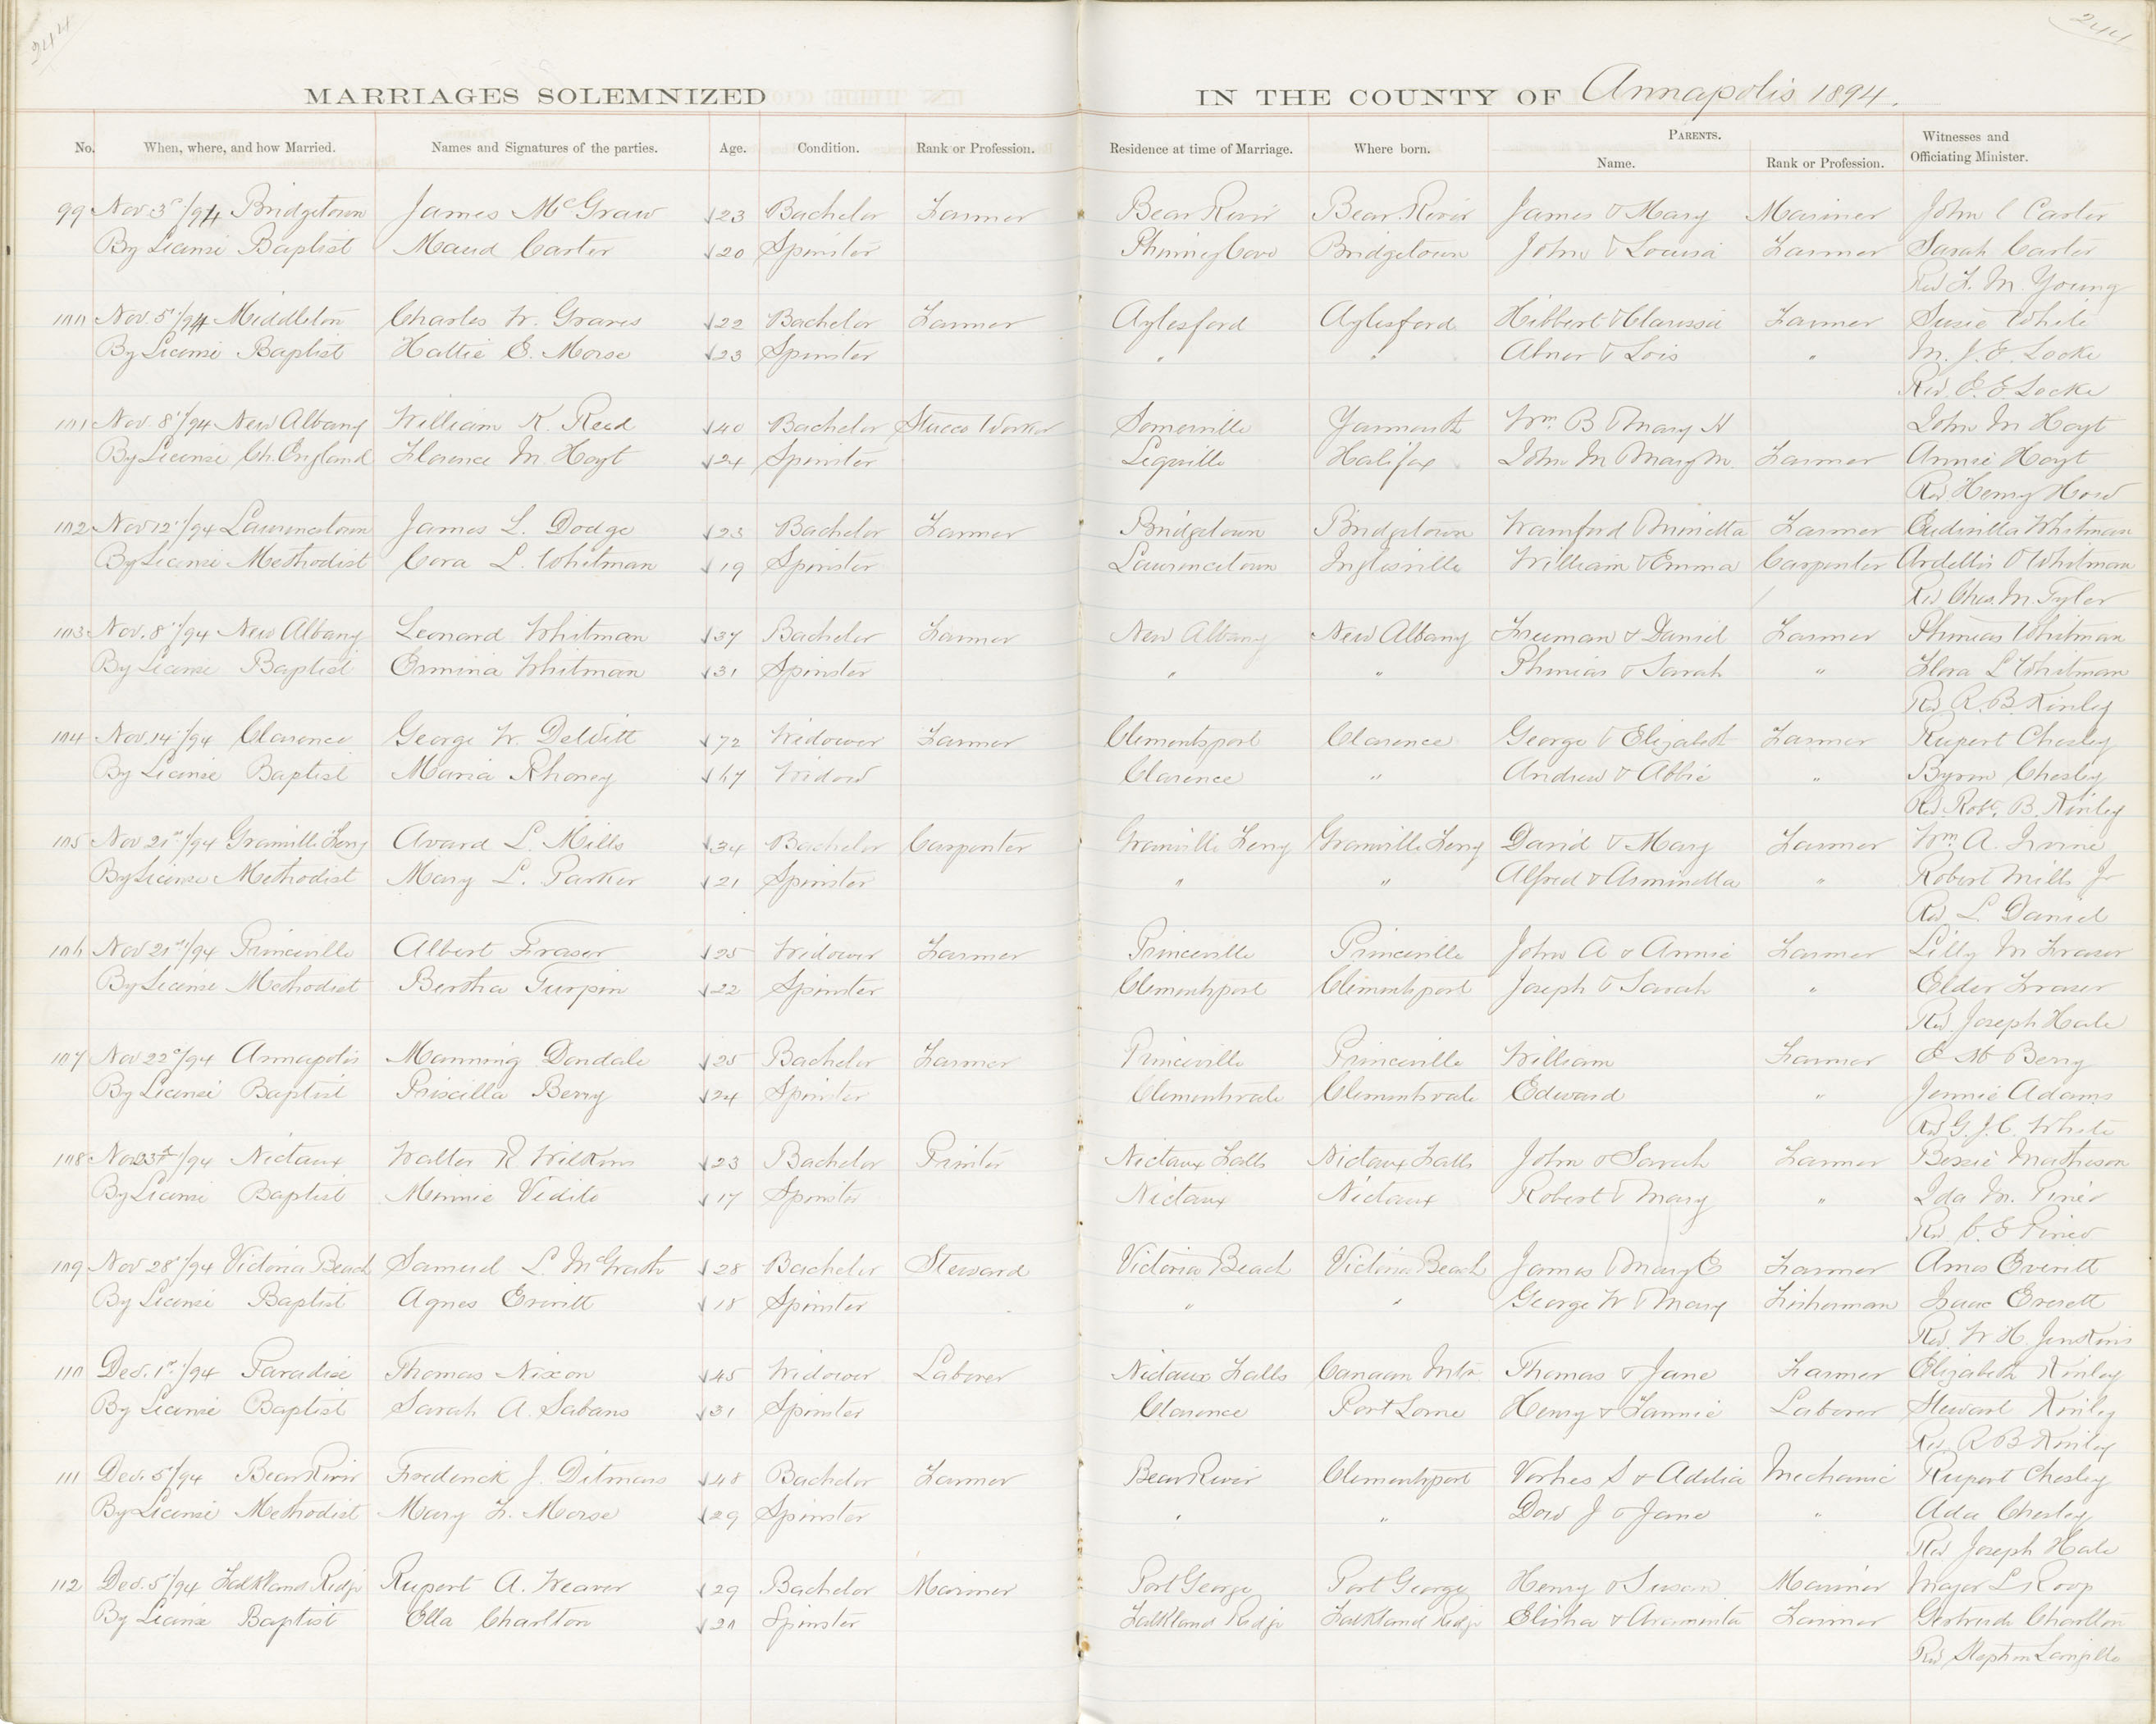 244
244
MARRIAGES SOLEMNIZED IN THE COUNTY OF Annapolis 1894.
No. When, where, and how Married. Names and Signatures of the parties. Age. Condition. Rank or Profession. Residence at time of Marriage. Where born. PARENTS. Name. Rank or Profession. Witnesses and Officiating Minister.
99 Nov. 3rd/94 Bridgetown James McGraw 23 Bachelor Farmer Bear River Bear River James & Mary Mariner John C Carter
By License Baptist Maud Carter 20 Spinster Phinney Cove Bridgetown John & Louisa Farmer Sarah Carter
Rev F. M. Young
100 Nov. 5th/94 Middleton Charles W. Graves 22 Bachelor Farmer Aylesford Aylesford Hibbert & Clarissa Farmer Susie White
By License Baptist Hattie E. Morse 23 Spinster " " Abner & Lois " M. J. E. Locke
Rev E. E. Locke
101 Nov. 8th/94 New Albany William K. Reed 40 Bachelor Stucco Worker Somerville Yarmouth Wm. B & Mary H John M Hoyt
By License Ch. England Florence M Hoyt 24 Spinster Lequille Halifax John M & Mary M Farmer Annie Hoyt
Rev Henry How
102 Nov 12th/94 Lawrencetown James L. Dodge 23 Bachelor Farmer Bridgetown Bridgetown Wamford & Minetta Farmer Whitman
By License Methodist Cora L. Whitman 19 Spinster Lawrencetown Inglisville William & Emma Carpenter Whitman
Rev Chas. M. Tyler
103 Nov. 8th/94 New Albany Leonard Whitman 37 Bachelor Farmer New Albany New Albany Freeman & Daniel Farmer Phineas Whitman
By License Baptist Ormina Whitman 31 Spinster " " Phineas & Sarah " Flora L Whitman
Rev R. B. Kinley
104 Nov. 14th/94 Clarence George W. DeWitt 72 Widower Farmer Clementsport Clarence George & Elizabeth Farmer Rupert Chesley
By License Baptist Maria Rhoney 67 Widow Clarence " Andrew & Abbie " Byron Chesley
Rev. Robt. B. Kinley
105 Nov 21st/94 Granville Ferry Avard L. Mills 34 Bachelor Carpenter Granville Ferry Granville Ferry David & Mary Farmer Wm. A. Irvine
By License Methodist Mary L. Parker 21 Spinster " " Alfred & Arminella " Robert Mills Jr
Rev. L. Daniel
106 Nov 21st/94 Princeville Albert Fraser 25 Widower Farmer Princeville Princeville John A & Annie Farmer Lilly M Fraser
By License Methodist Bertha Turpin 22 Spinster Clementsport Clementsport Joseph & Sarah " Elder Fraser
Rev. Joseph Hale
107 Nov 22d/94 Annapolis Manning Dondale 25 Bachelor Farmer Princeville Princeville William Farmer Berry
By License Baptist Priscilla Berry 24 Spinster Clementsvale Clementsvale Edward " Jennie Adams
Rev G. J. C. White
108 Nov 23rd/94 Nictaux Walter R Wilkins 23 Bachelor Printer Nictaux Falls Nictaux Falls John & Sarah Farmer Bessie Matheson
By License Baptist Minnie Vidito 17 Spinster Nictaux Nictaux Robert & Mary " Ida M. Pineo
Rev. C. E Pineo
109 Nov 28th/94 Victoria Beach Samuel L. McGrath 28 Bachelor Steward Victoria Beach Victoria Beach James & Mary E Farmer Amos Everitt
By License Baptist Agnes Everitt 18 Spinster " " George W & Mary Fisherman Isaac Everett
Rev. W. H. Jenkins
110 Dec. 1st/94 Paradise Thomas Nixon 45 Widower Laborer Nictaux Falls Canaan Mtn Thomas & Jane Farmer Elizabeth Kinley
By License Baptist Sarah A. Sabans 31 Spinster Clarence Port Lorne Henry & Fannie Laborer Stewart Kinley
Rev. R B Kinley
111 Dec. 5th/94 Bear River Frederick J. Ditmars 48 Bachelor Farmer Bear River Clementsport Vorhes S & Adelia Mechanic Rupert Chesley
By License Methodist Mary F. Morse 29 Spinster " " Dow J & Jane " Ada Chesley
Rev Joseph Hale
112 Dec. 5th/94 Falkland Ridge Rupert A. Weaver 29 Bachelor Mariner Port George Port George Henry & Susan Mariner Major L Roop
By License Baptist Ella Charlton 20 Spinster Falkland Ridge Falkland Ridge Elisha & Araminta Farmer Gertrude Charlton
Rev Stephen Langille